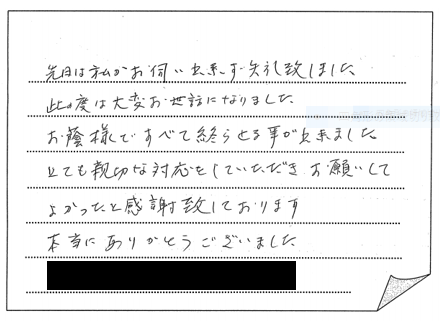 先日は私がお伺い出来ず失礼致しました
此の度は大変お世話になりました
お蔭様ですべて終らせる事が出来ました
とても親切な対応をしていただき お願いして
よかったと感謝致しております
本当にありがとうございました